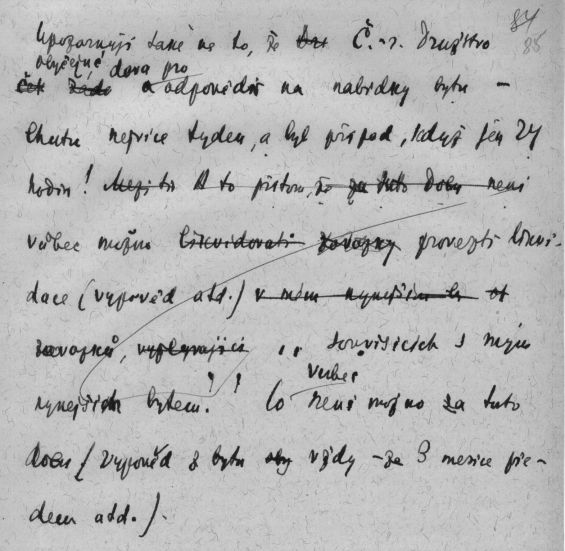 84
85
Upozorňuji také na to, že Č.-s. Družstvo
obyčejně dává pro
odpovědi na nabídky bytu –
lhutu nejvíce tyden, a byl připad, když jen 24
hodin! Mezi tí A to přitom, že za tuto dobu není
vůbec možno likvidovati závazky provezti likvi-
dace (vypověd atd.) v mém nynějším
závazků, vyplyvající souvisicich s mým
nynějším bytem!!
vůbec
Co není možno za tuto
dobu (vypověd z bytu aby vždy – za 3 měsice pře-
dem atd.).